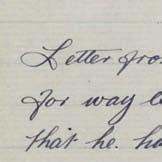 Letter
for way
that he.